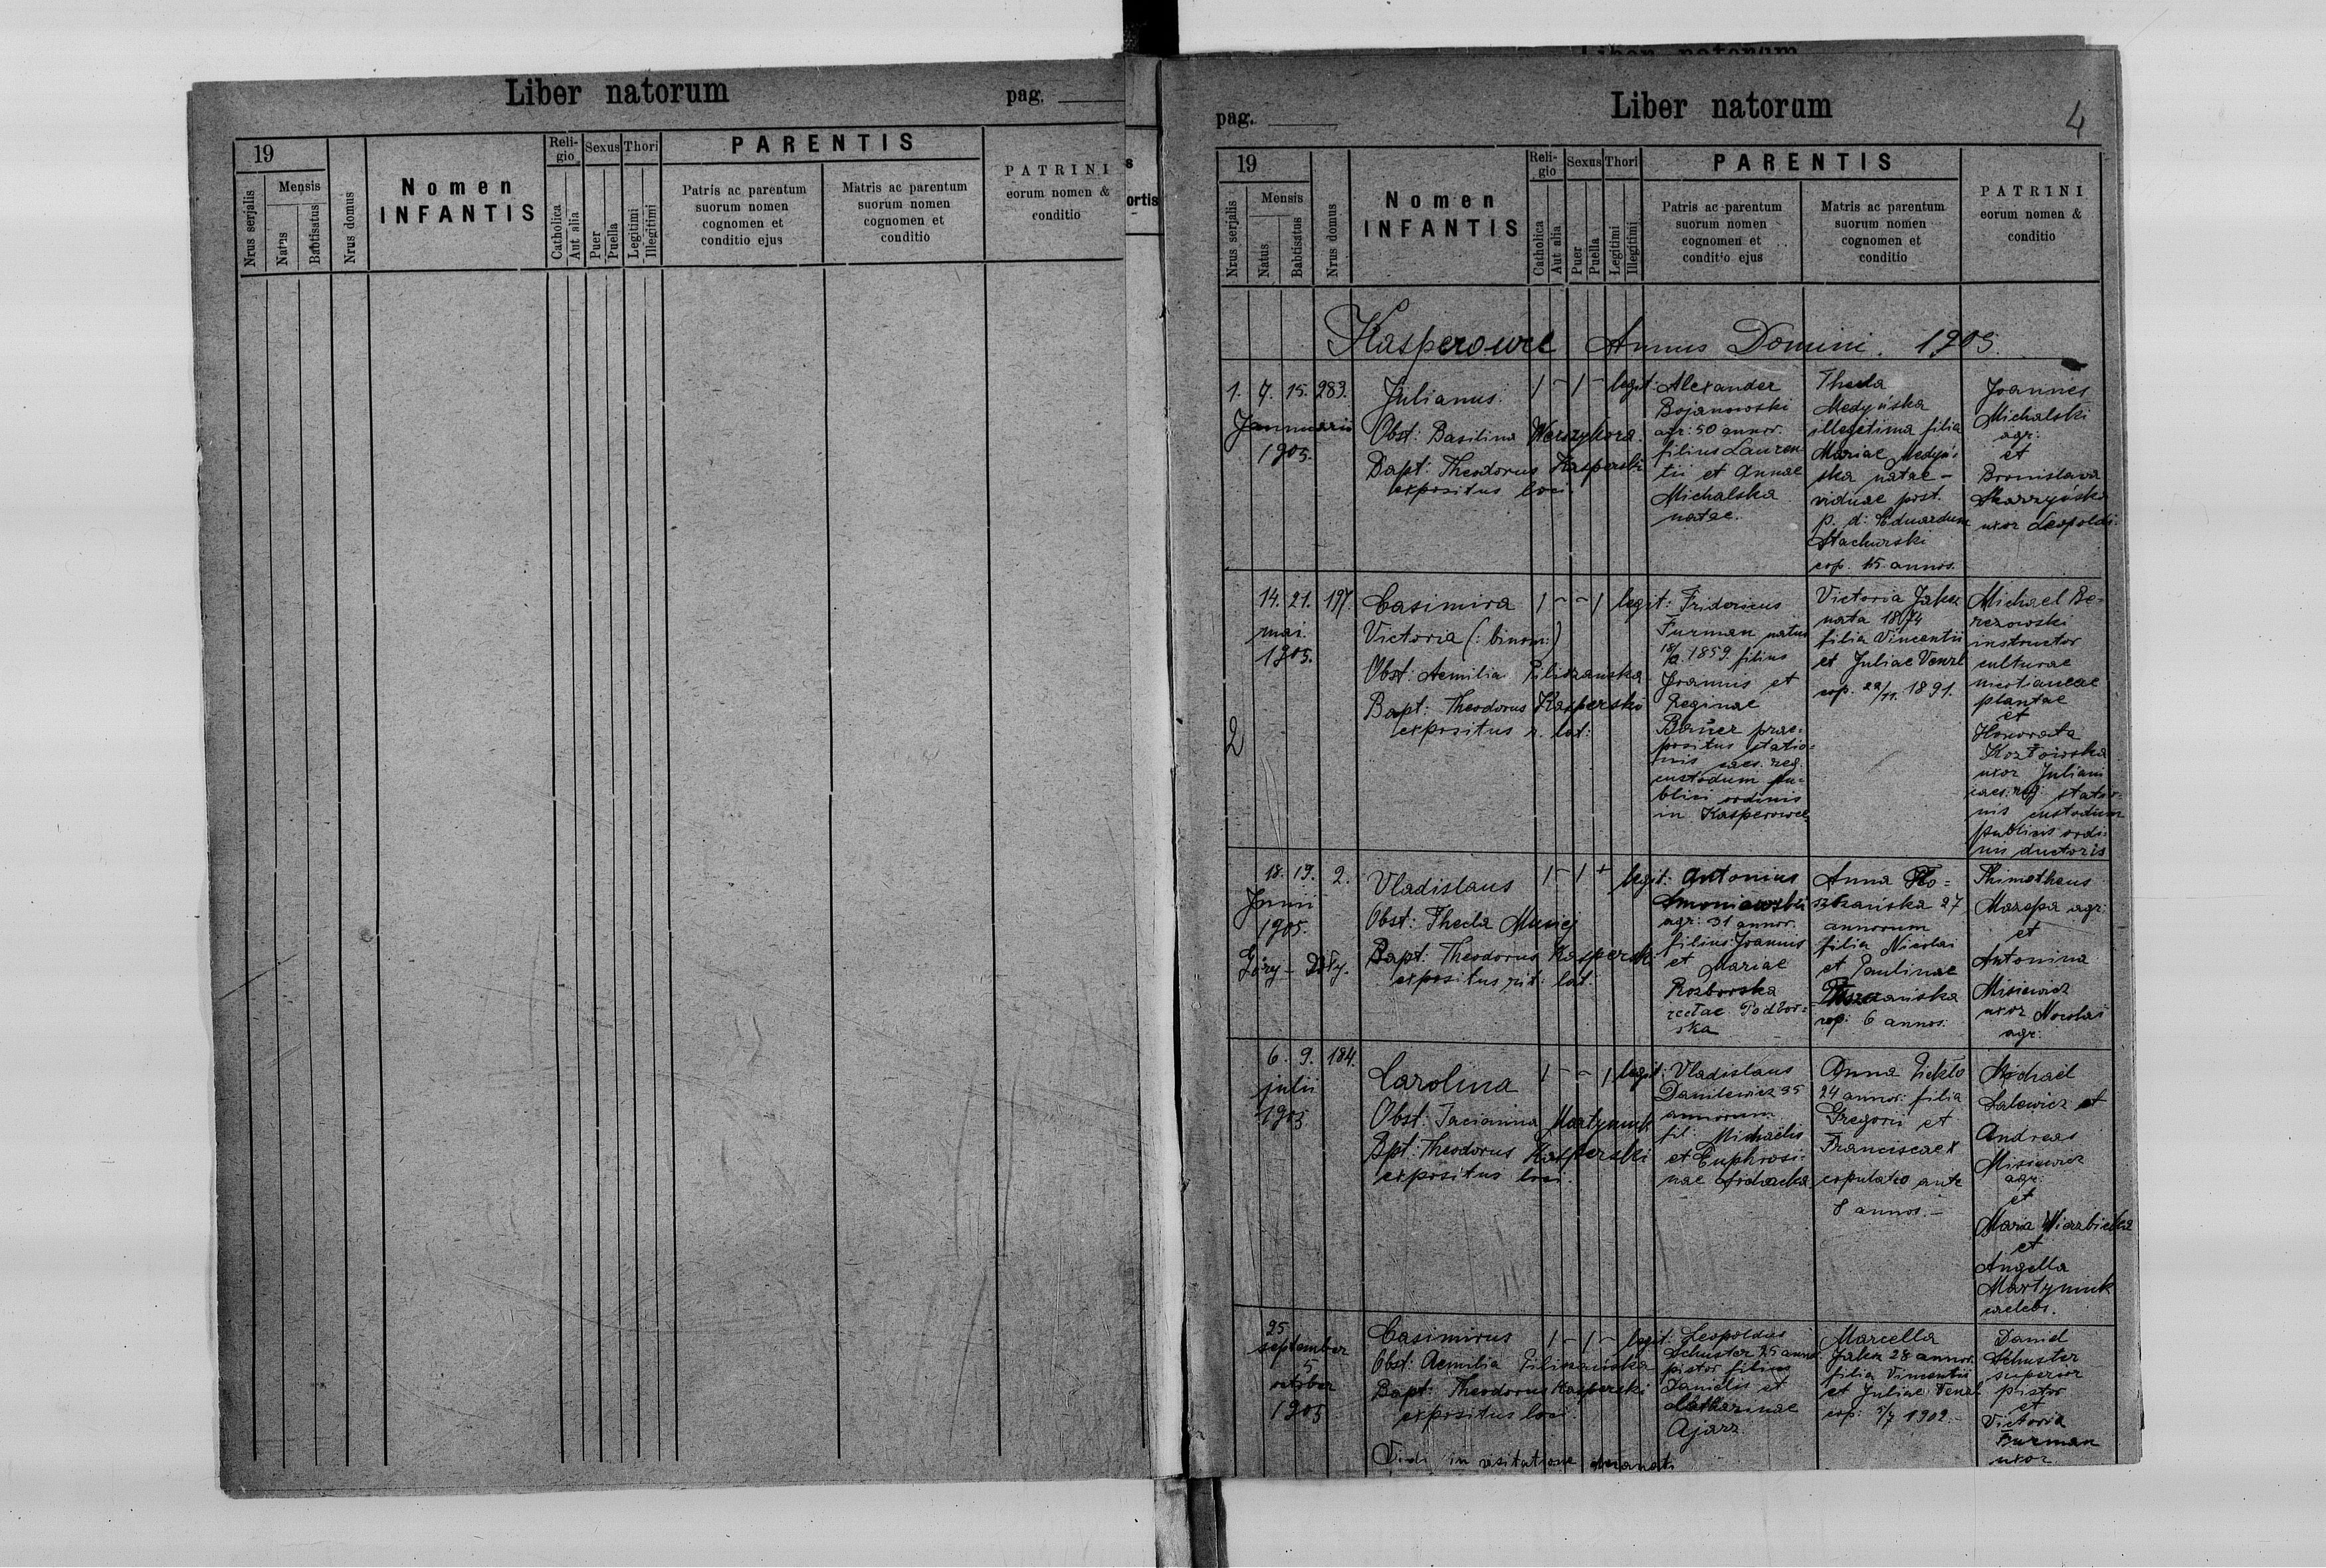 Liber natorum
pag.
19
Mensis
Nrus serjalis
Natus
Babtisatus
Nrus domus
Nomen
INFANTIS
Reli-
gio
Catholica
Aut alia
Sexus
Puer
Puella
Thori
Legitimi
Illegitimi
PARENTIS
Patris ac parentum
suorum nomen
cognomen et
conditio ejus
Matris ac parentum
suorum nomen
cognomen et
conditio
PATRINI
eorum nomen &
conditio
s
ortis
Liber natorum
pag.
Liber natorum
4
19
Mensis
Nrus serjalis
Natus
Babtisatus
Nrus domus
Nomen
INFANTIS
Reli-
gio
Catholica
Aut alia
Sexus
Puer
Puella
Thori
Legitimi
Illegitimi
PARENTIS
Patris ac parentum
suorum nomen
cognomen et
conditio ejus
Matris ac parentum
suorum nomen
cognomen et
conditio
PATRINI
eorum nomen &
conditio
Kasperowce Annus Domini. 1905.
1. 7. 15. 283.
Januarii
1905.
Julianus.
Obst: Basilina
Bapt: Theodorus Kasperski
expositus loci.
1 - 1 - legit:
Alexander
Bojanowski
agr: 50 annor.
filius Lauren
tii et Annae
Michalska
natae.
Thecla
Medyńska
illegitima filia
Mariae Medyń
ska natae -
viduae post.
p. d: Eduardum
Stachurski
cop. 15 annos.
Joannes
Michalski
agr:
et
Bronislava
Skarzyńska
uxor Leopoldi.
2
14. 21. 197.
mai.
1905.
Casimira
Victoria (: binom:)
Obst: Aemilia Piliszańska
Bapt: Theodorus Kasperski
expositus r. lat:
1 - - 1 legit:
Fridericus
Furman natus
1859. filius
Joannis et
Reginae
Bauer prae-
positus statio-
nis caes. reg.
custodum pu-
blici ordinis
in Kasperowce
Victoria
nata 1874
filia Vincentii
et Juliae Venzl
cop. 22/11. 1891.
Michael Be-
rezowski
instructor
culturae
nicotianeae
plantae
et
Honorata
Kozłowska
uxor Juliani
caes. reg: statio-
nis custodum
publicis ordi-
nis ductoris
18. 19. 2.
Junii
1905.
Góry - Doły.
Vladislaus
Obst: Thecla
Bapt: Theodorus Kasperski
expositus rit: lat:
1 - 1 + legit:
Antonius
agr: 31 annor.
filius Joannis
et Mariae
Rozborska
recte Podbor-
ska
Anna
27
annorum
filia Nicolai
et Paulinae
cop: 6 annos.
Thimotheus
Mazepa agr:
et
Antonina
Misiewicz
uxor Nicolai
agr:
6. 9. 184.
julii
1905
Carolina
Obst: Tacianna Martyniuk
Bpt: Theodorus Kasperski
expositus loci.
1 - - 1 legit:
Vladislaus
Danilewicz 35
annorum
fil: Michaelis
et Euphrosi-
nae
Anna
24 annor: filia
Gregorii et
Franciscae
copulatio ante
8 annos. -
Michael
Salewicz et
Andreas
Misiewicz
agr:
et
Maria Wierzbicka
et
Angella
Martyniuk
caelebs.
25
september
5
october
1905
Casimirus
Obst: Aemilia Piliszańska
Bapt: Theodorus Kasperski
expositus loci.
1 - 1 - legit:
Leopoldus
Schuster 25 annor.
pistor filius
Danielis et
Catharinae
Ajarz
Marcella
28 annor.
filia Vincentii
et Juliae Venzl
cop: 5/7 1902. -
Daniel
Schuster
superior
pistor
et
Victoria
Furman
uxor
Vidi in visitatione decanali